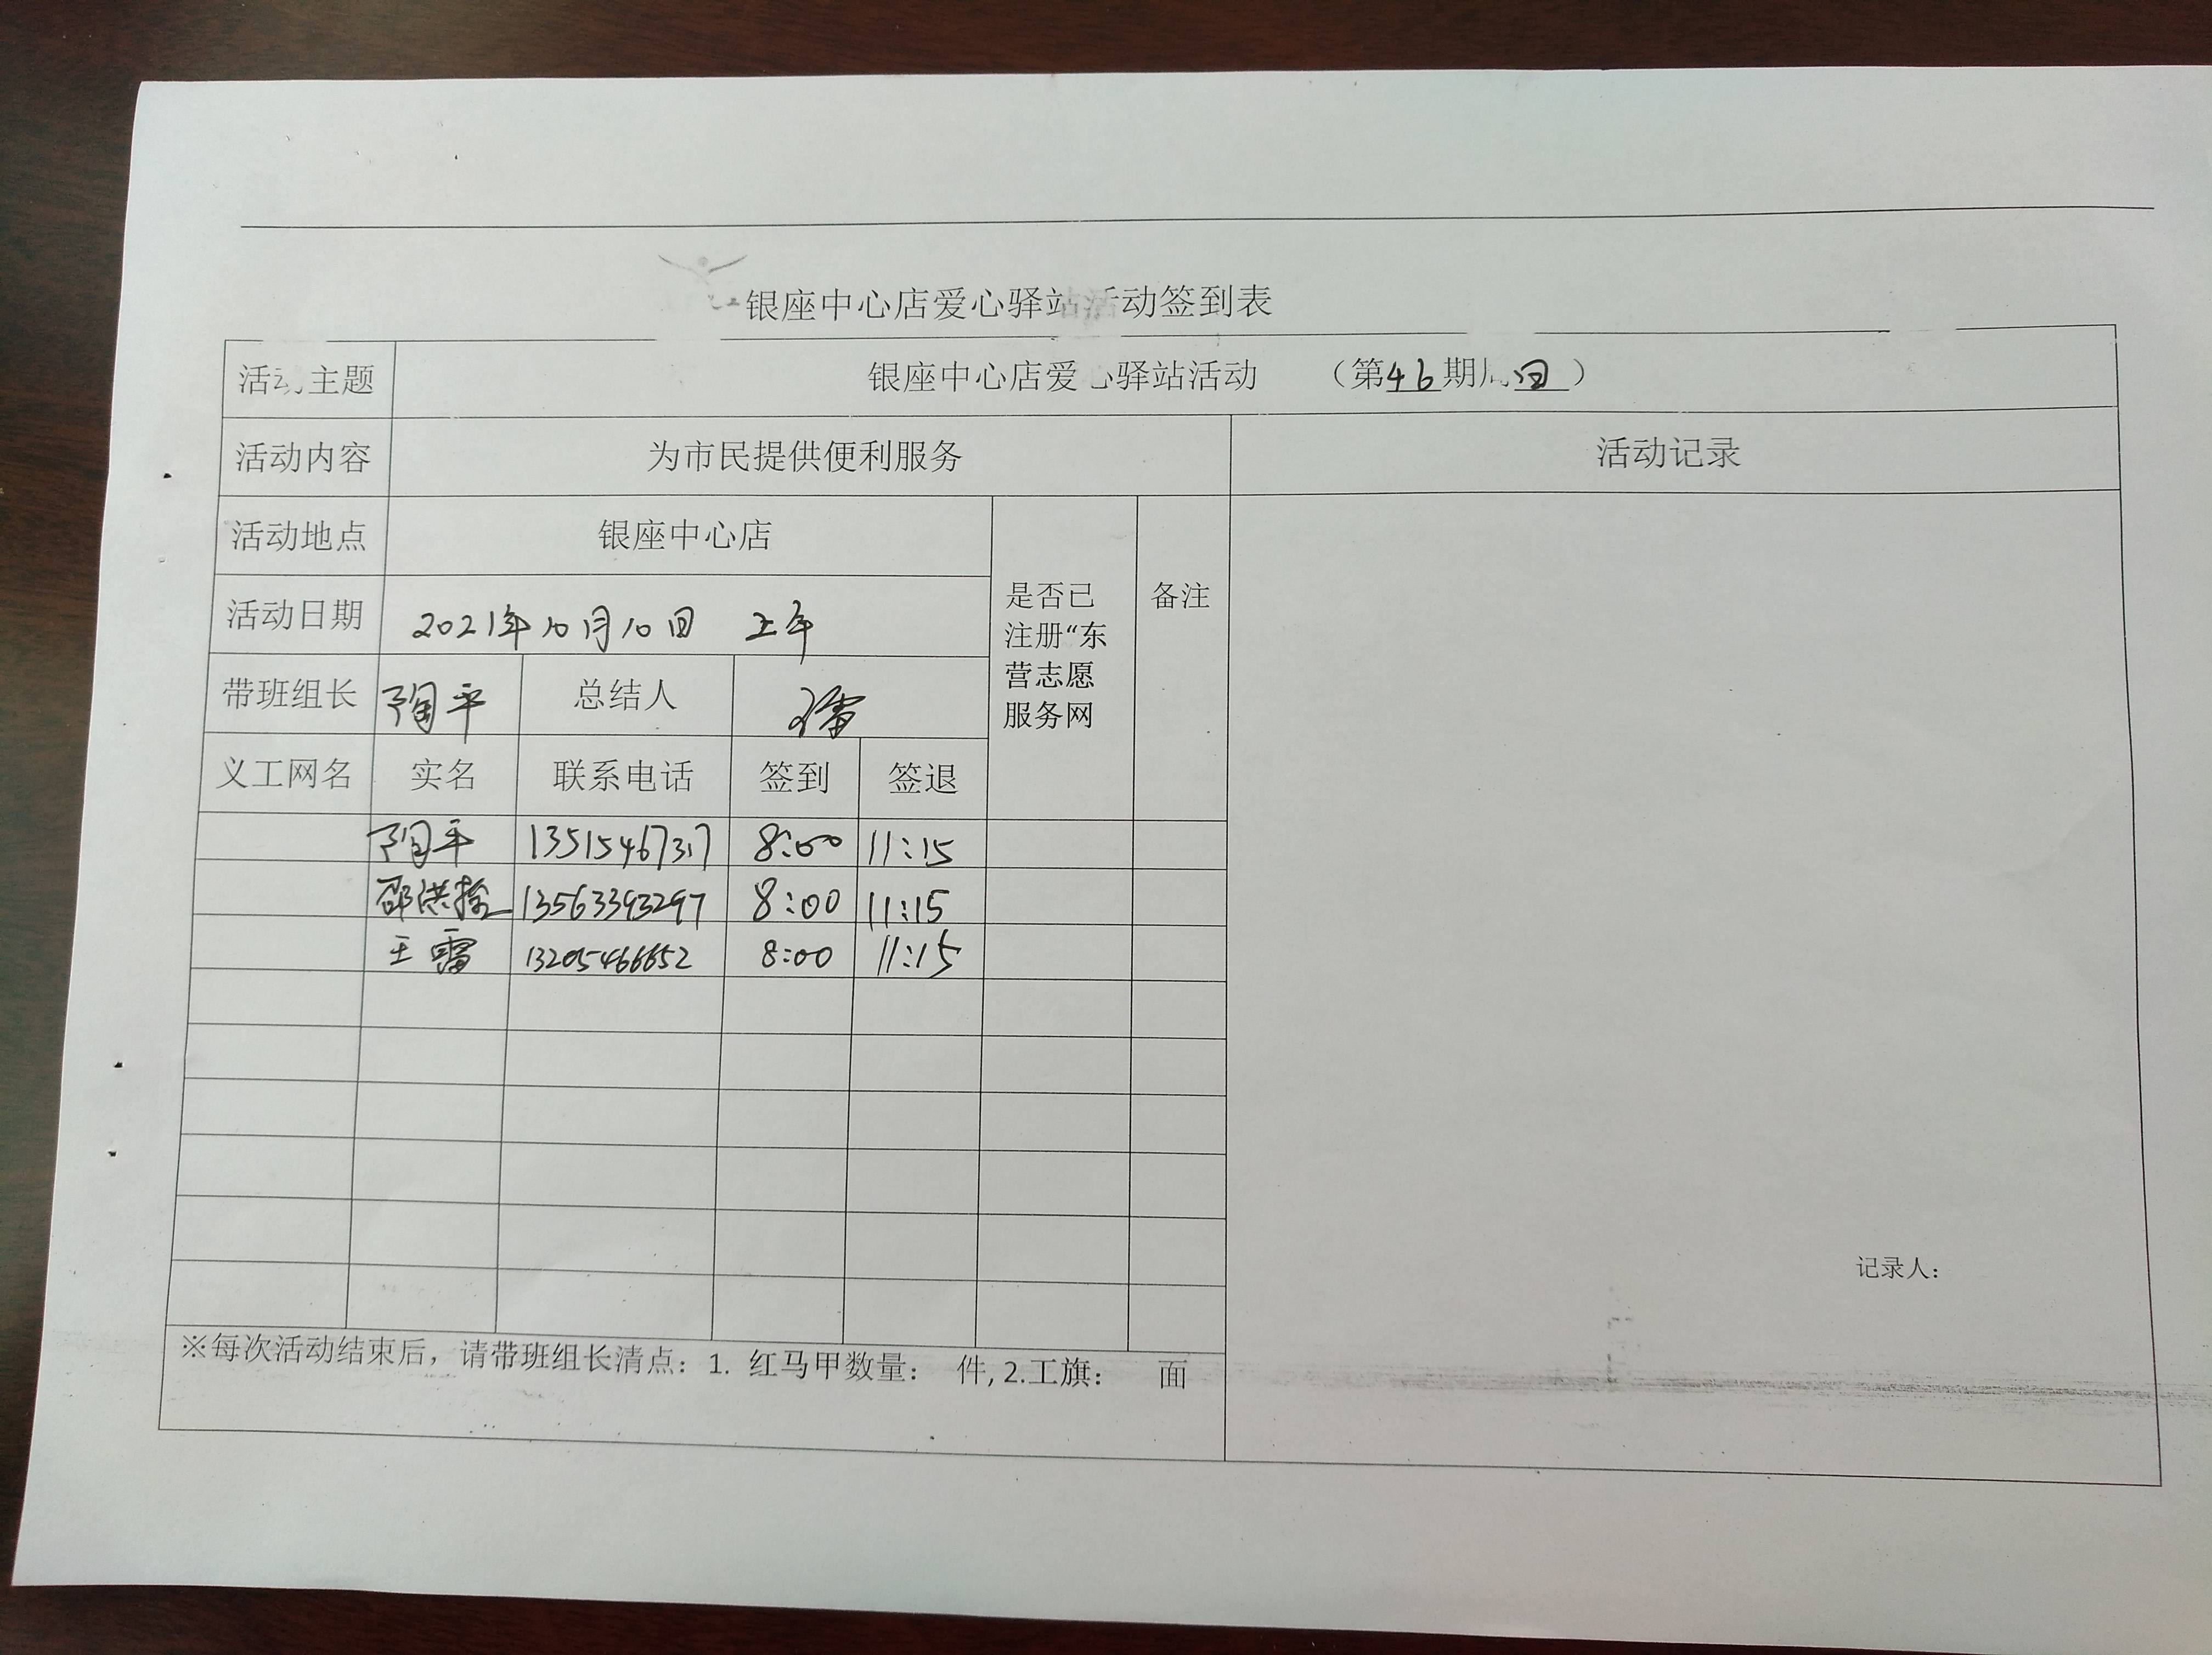 银座中心店爱心驿站活动签到表
活动主题 银座中心店爱心驿站活动 （第46期周日）
活动内容 为市民提供便利服务 活动记录
活动地点 银座中心店
是否已注册“东营志愿服务网 备注
活动日期 2021年10月10日 上午
带班组长 陶平 总结人 王雷
义工网名 实名 联系电话 签到 签退
陶平 13515467317 8:00 11:15
邵洪拴 13563393297 8:00 11:15
王雷 13205466652 8:00 11:15
记录人：
※每次活动结束后，请带班组长清点：1. 红马甲数量： 件,2.工旗： 面